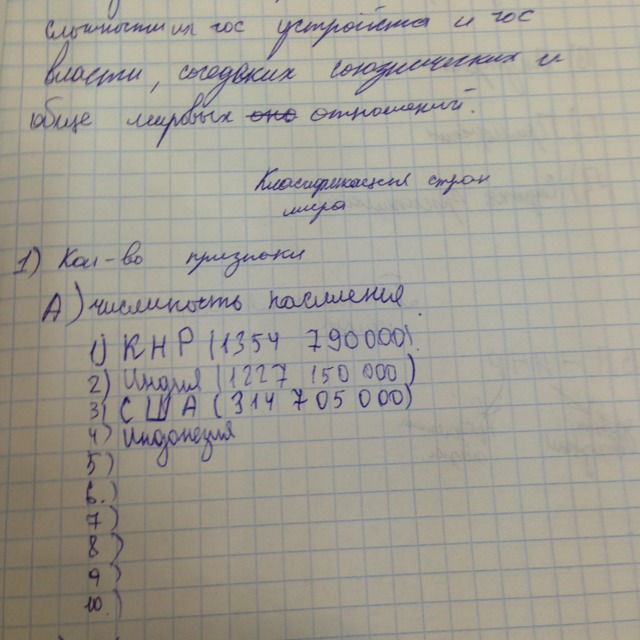 гос устройства и гос
власти, союзнических и
обще мировых оно отношений.
Классификация стран
мира
1) Кол-во признаки
А) числиность насиления
1) КНР (1354 790000).
2) Индия (1227 150 000)
3) США (314 705 000)
4) Индонезия
5)
6.)
7)
8)
9)
10.)